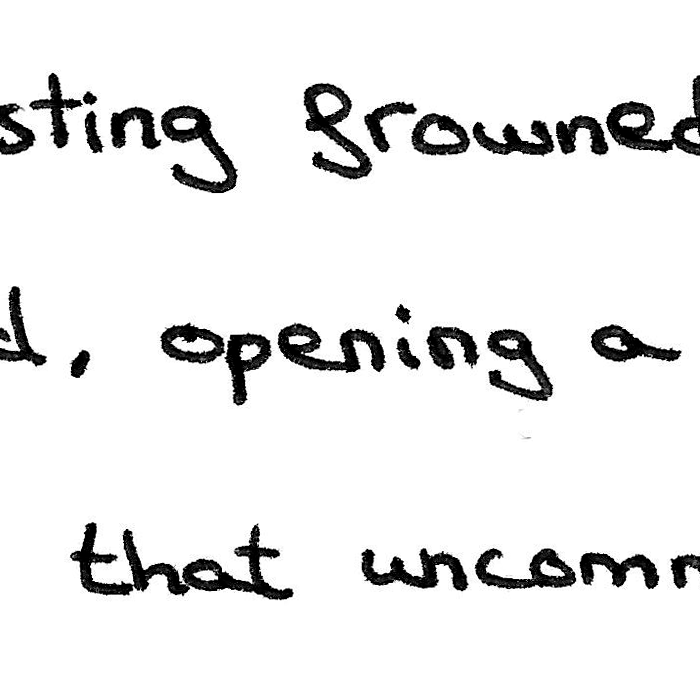 sting frowned
d, opening a
that uncomm